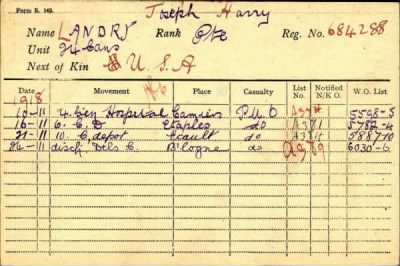 Form B. 140.
Joseph Harry
Name LANDRY Rank Pte Reg. No. 684288
Unit 24 Cans
Next of Kin U.S.A
Date Movement Place Casualty List No. Notified N/K O. W.O. List
1918
10-11 4 Gen Hospital Camiers P.U.O A374 5598-5
16-11 6. C. D Etaples do A381 5782-4
21-11 10. C. depot Ecault do A384 5887-10
26-11 disch. Dets C. B'logne do A389 6030-6